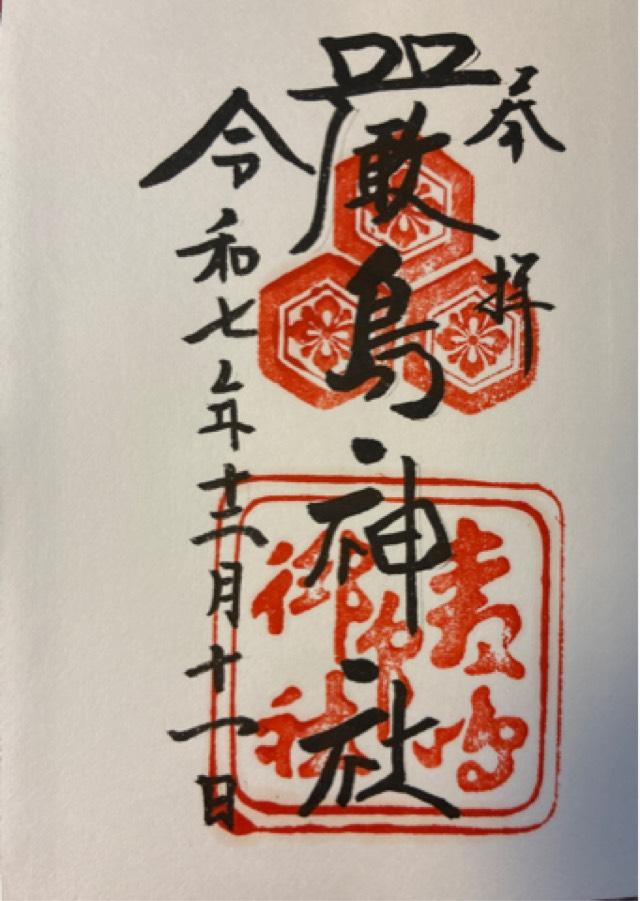 奉拝
嚴島神社
令和七年十二月十一日